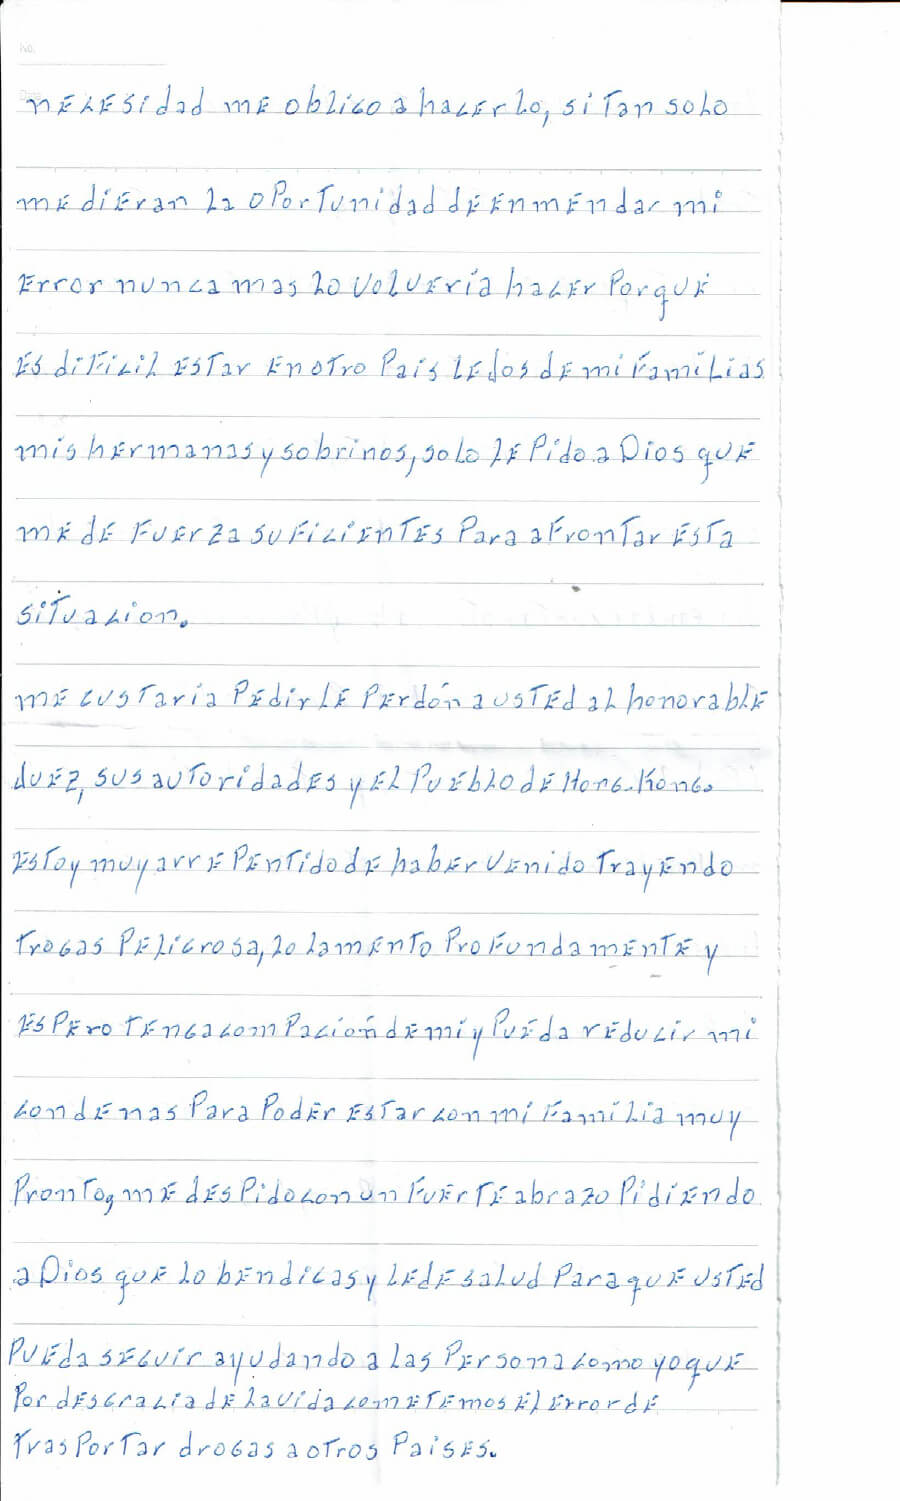 No.
necesidad me obligo a hacerlo, si tan solo
me dieran la oportunidad de enmendar mi
error nunca mas lo volvería hacer porque
es dificil estar en otro pais lejos de mi familias
mis hermanas y sobrinos, solo le pido a Dios que
me de fuerza suficientes para afrontar esta
situacion.
me gustaria pedirle perdón a usted al honorable
Juez, sus autoridades y el pueblo de Hong-Kong.
Estoy muy arrepentido de haber venido trayendo
trogas peligrosa, lo lamento profundamente y
espero tenga compación de mi y pueda reducir mi
condenas para poder estar con mi familia muy
pronto, me despido con un fuerte abrazo pidiendo
a Dios que lo bendigas y le de salud para que usted
pueda seguir ayudando a las persona como yo que
por desgracia de la vida cometemos el error de
trasportar drogas a otros paises.